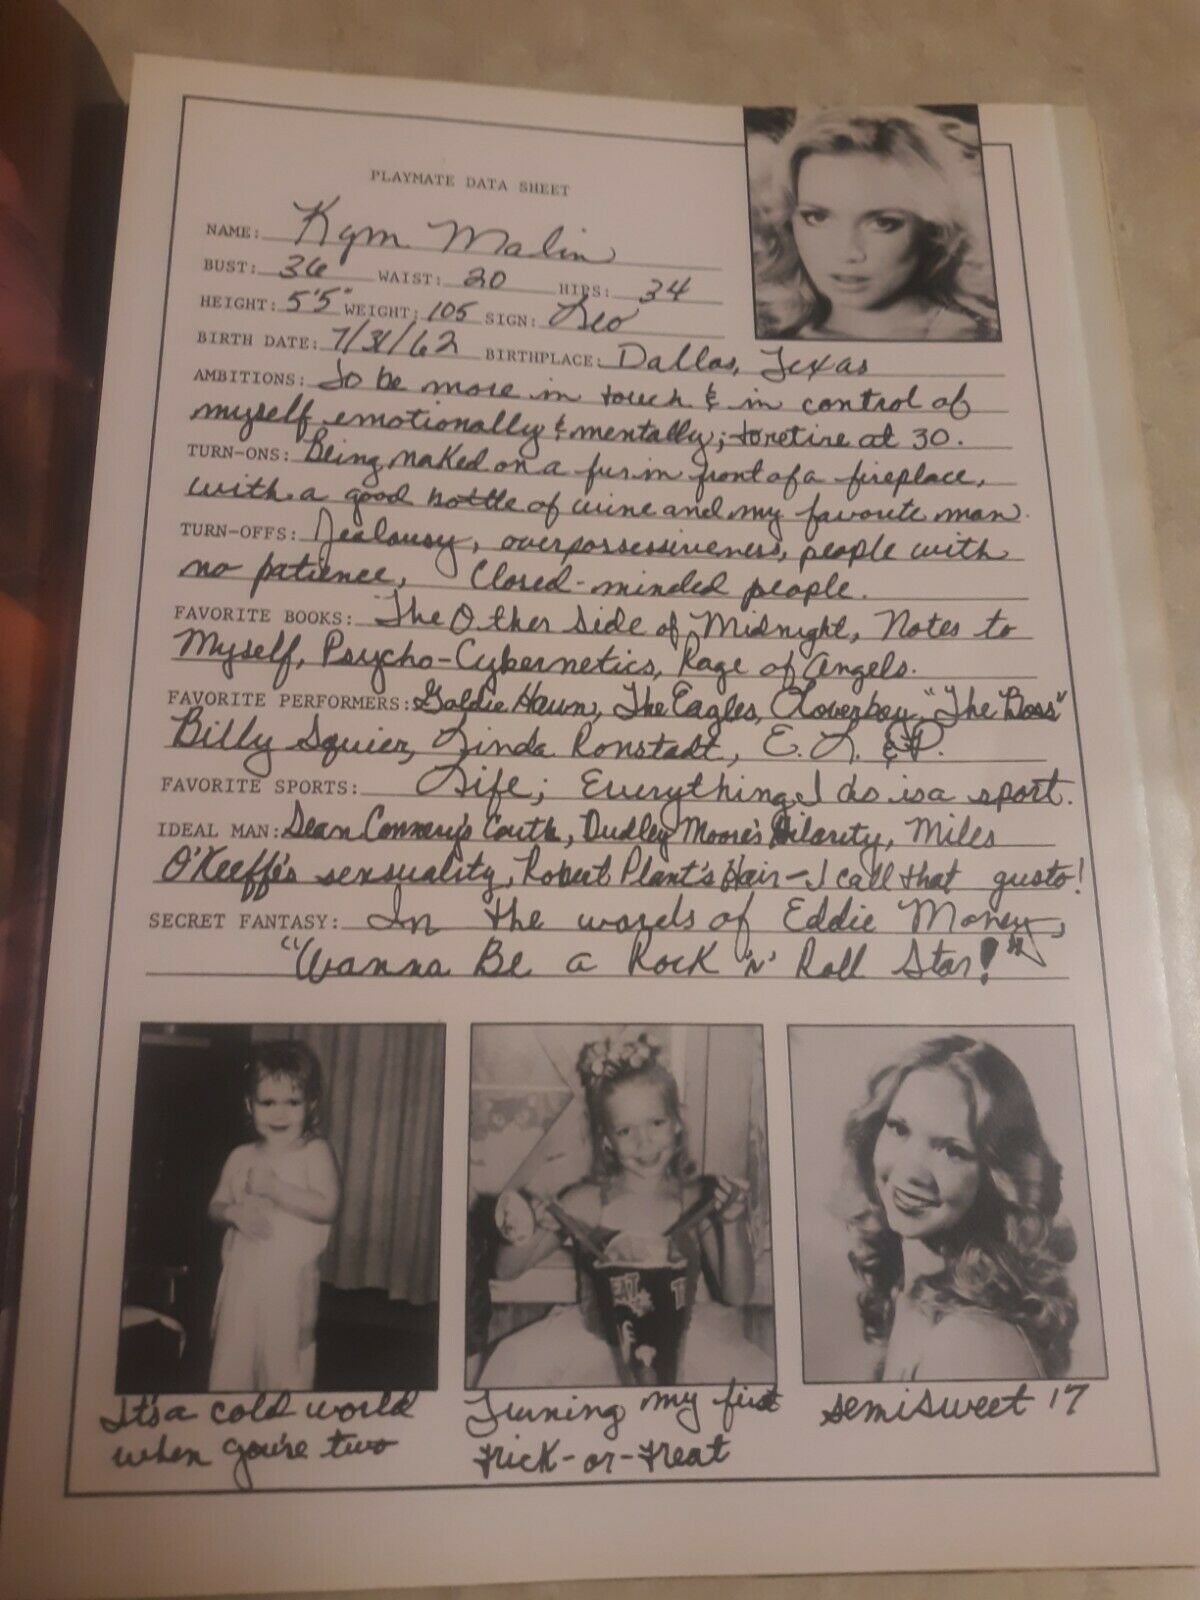 PLAYMATE DATA SHEET
NAME: Kym Malin
BUST: 36 WAIST: 20 HIPS: 34
HEIGHT: 5'5" WEIGHT: 105 SIGN: Leo
BIRTH DATE: 7/31/62 BIRTHPLACE: Dallas, Texas
AMBITIONS: To be more in touch & in control of
myself emotionally & mentally; to retire at 30.
TURN-ONS: Being naked on a fur in front of a fireplace,
with a good bottle of wine and my favorite man.
TURN-OFFS: Jealousy, overpossessiveness, people with
no patience, closed-minded people.
FAVORITE BOOKS: The Other Side of Midnight, Notes to
Myself, Psycho-Cybernetics, Rage of Angels.
FAVORITE PERFORMERS: Goldie Hawn, The Eagles, Loverboy, "The Boss"
Billy Squier, Linda Ronstadt, E. L. & P.
FAVORITE SPORTS: Life; Everything I do is a sport.
IDEAL MAN: Sean Connery's Couth, Dudley Moore's Hilarity, Miles
O'Keeffe's sensuality, Robert Plant's Hair—I call that gusto!
SECRET FANTASY: In the words of Eddie Money,
"Wanna Be a Rock 'n' Roll Star!"
It's a cold world
when you're two
Turning my first
trick-or-treat
semisweet 17